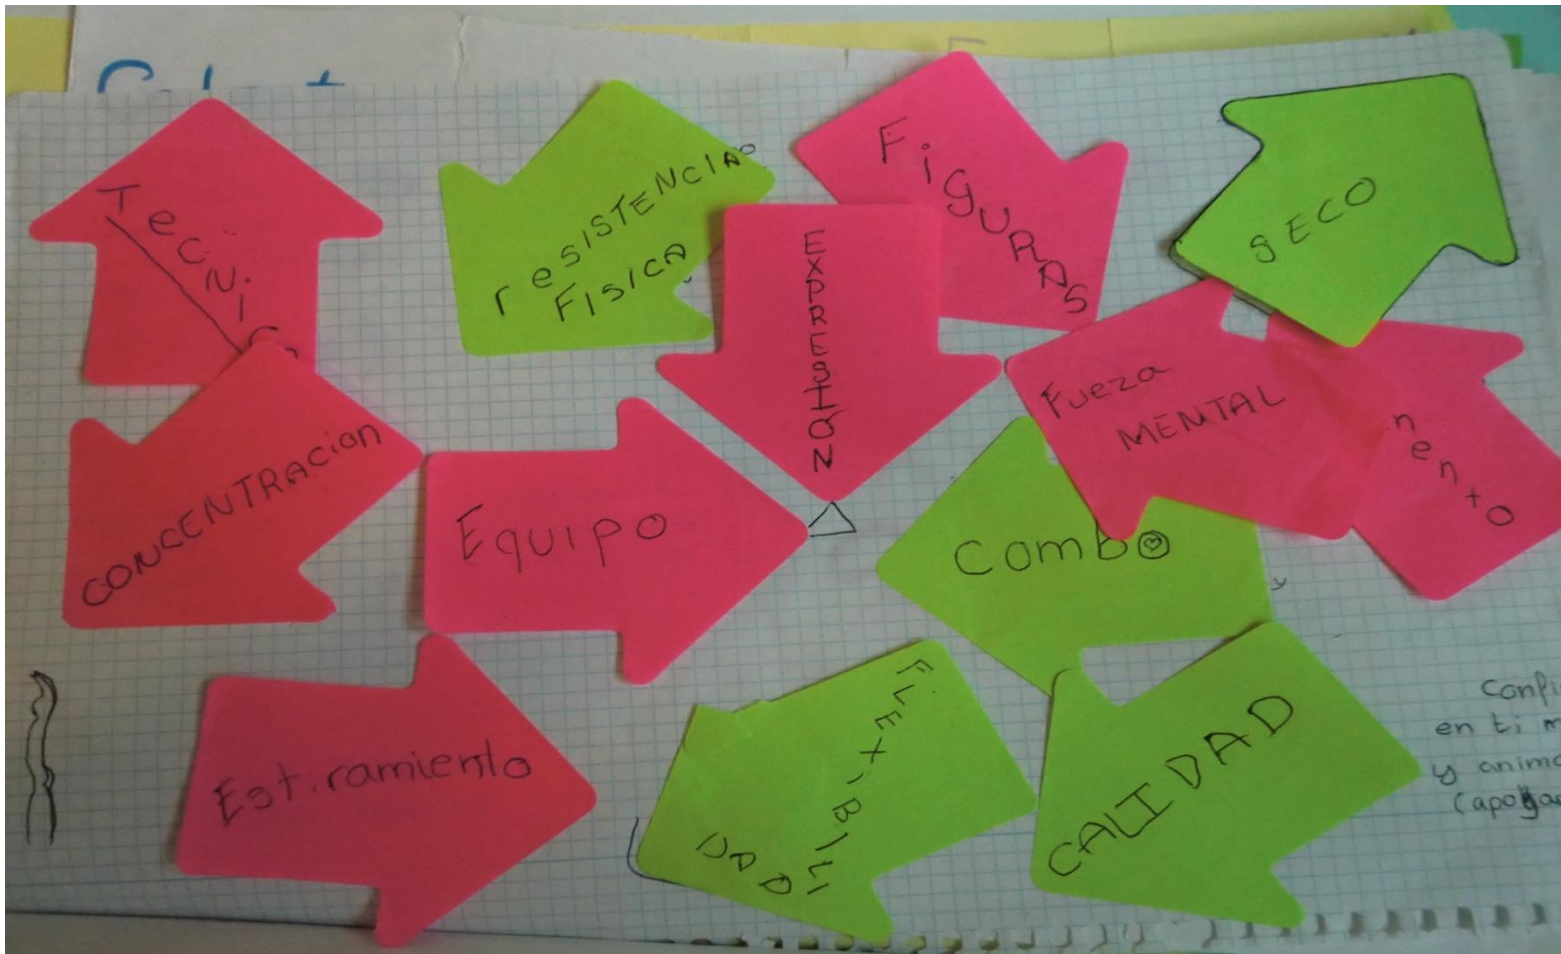 TecNiC
resISTENCIA
FISICA
FiguRAS
SECO
EXPRESIÓN
Fueza
MENTAL
nento
CONCENTRACion
Equipo
Combo
Estiramiento
FLEXIBILI
DAD
CALIDAD
Confi
en ti m
y anima
(apoya